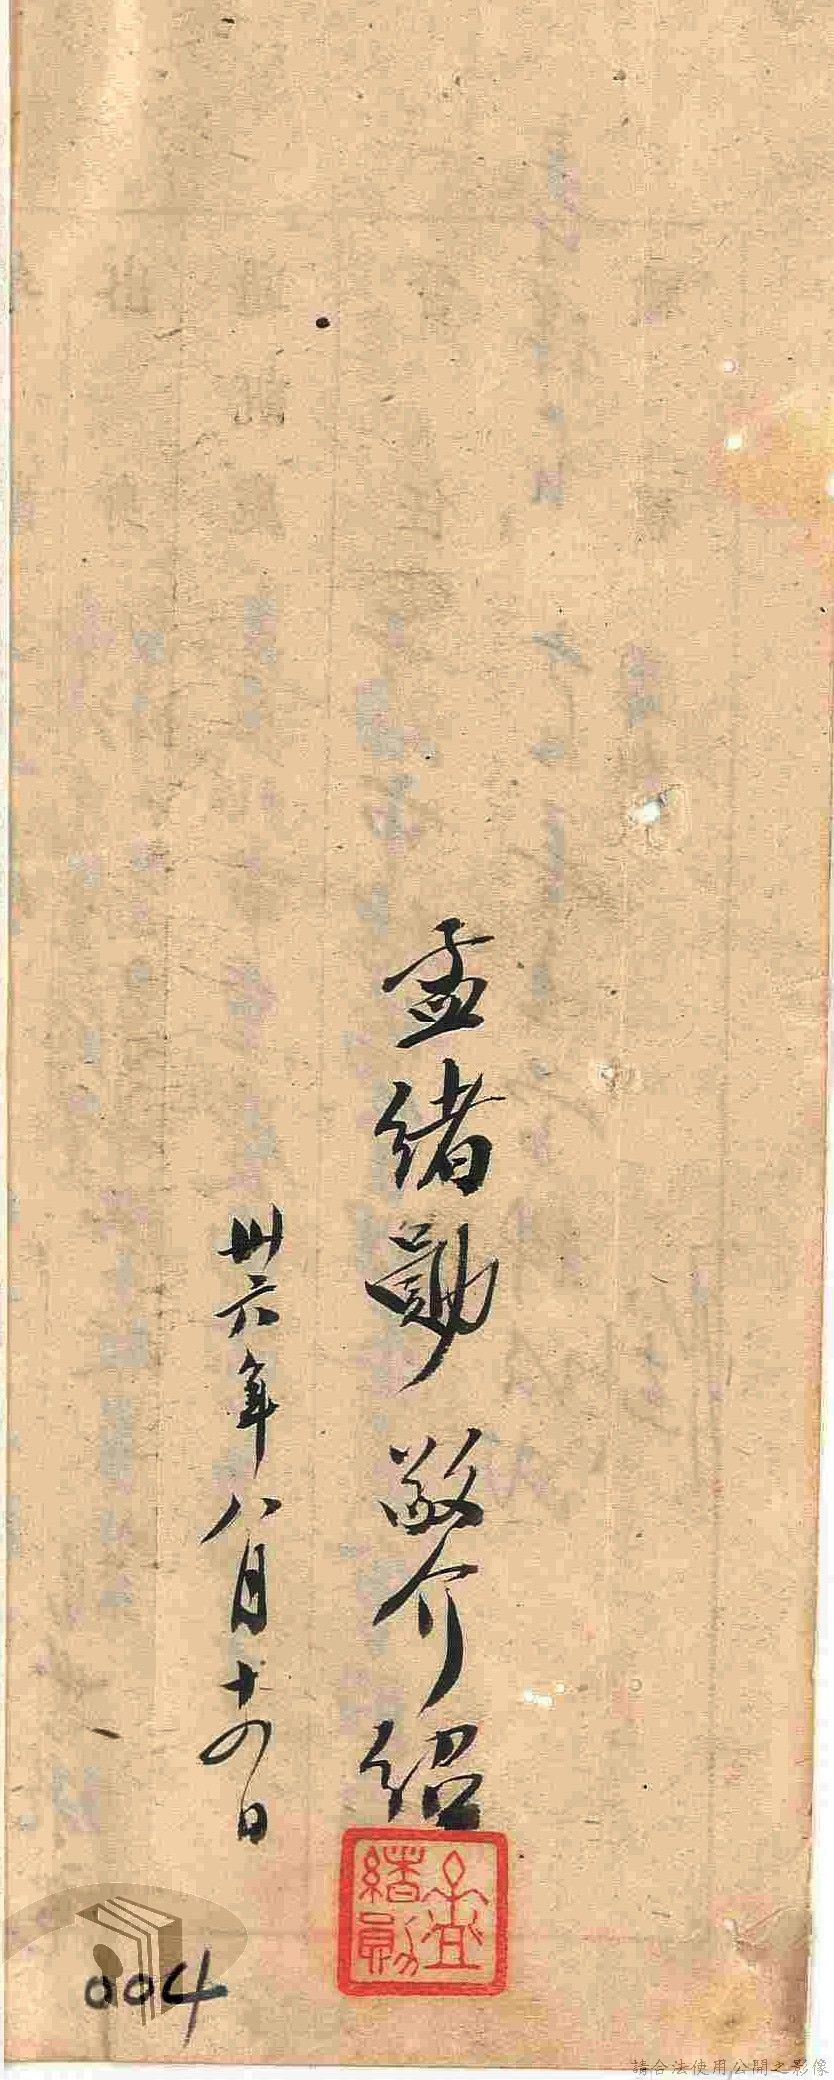 孟緒勛敬介紹
卅六年八月十四日
孟緒勛
004
請合法使用公開之影像